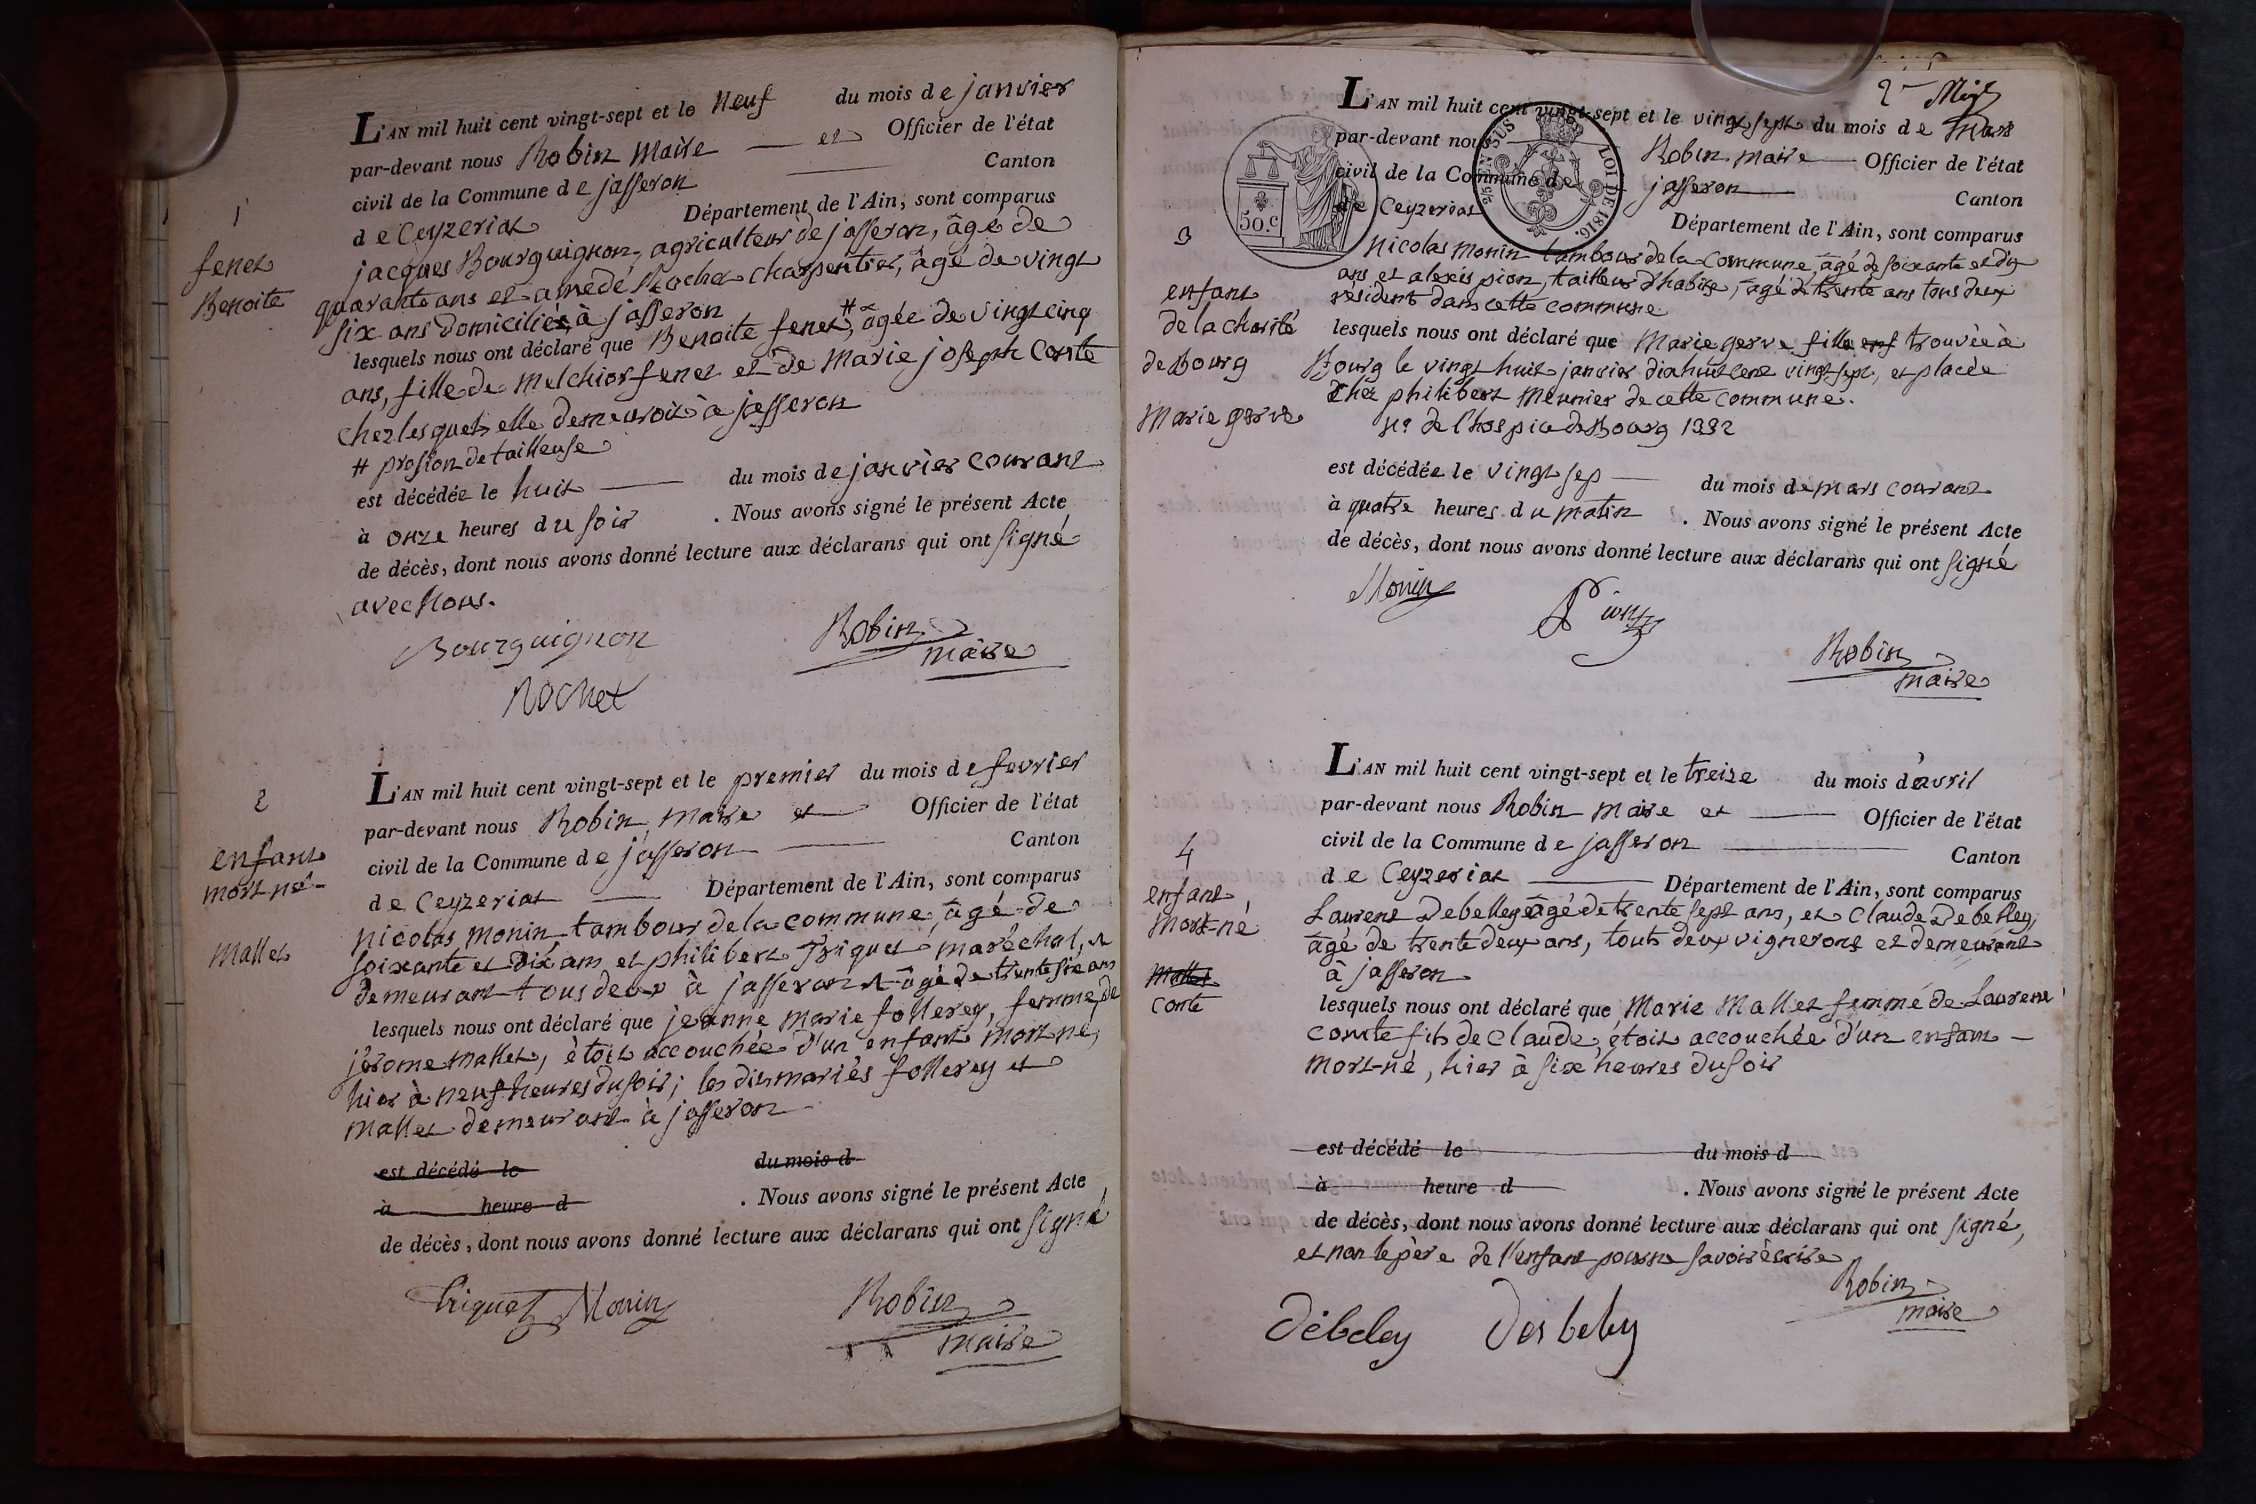 1
fenet
Benoite
L'AN mil huit cent vingt-sept et le Neuf du mois de janvier
par-devant nous Robin Maire et Officier de l'état
civil de la Commune de jasseron Canton
de Ceyzeriat Département de l'Ain, sont comparus
jacques Bourguignon, agriculteur de jasseron, âgé de
quarante ans et amedé Rochet charpentier, âgé de vingt
six ans domiciliés à jasseron
lesquels nous ont déclaré que Benoite fenet, # âgée de vingt cinq
ans, fille de Melchior fenet et de Marie joseph Conte
chez lesquels elle demeuroit à jasseron
# profion de tailleuse
est décédée le huit du mois de janvier courant
à onze heures du soir . Nous avons signé le présent Acte
de décès, dont nous avons donné lecture aux déclarans qui ont signé
avec Nous.
Bourguignon Robin
maire
Rochet
2
enfant
mort né
Mallet
L'AN mil huit cent vingt-sept et le premier du mois de fevrier
par-devant nous Robin, maire et Officier de l'état
civil de la Commune de jasseron Canton
de Ceyzeriat Département de l'Ain, sont comparus
Nicolas Monin tambour de la commune, âgé de
soixante et dix ans et philibert Triquet maréchal,
demeurant tous deux à jasseron âgé de trente six ans
lesquels nous ont déclaré que jeanne marie follerey, femme de
jérome mallet, étoit accouchée d'un enfant mort né,
hier à neuf heures du soir; les dits mariés follerey et
Mallet demeurant à jasseron
est décédé le du mois d
à heure d . Nous avons signé le présent Acte
de décès, dont nous avons donné lecture aux déclarans qui ont signé
Triquet Monin Robin
maire
2
3
enfant
de la charité
de Bourg
Marie gerve
L'AN mil huit cent vingt-sept et le vingt sept du mois de Mars
par-devant nous Robin maire Officier de l'état
civil de la Commune de jasseron Canton
de Ceyzeriat Département de l'Ain, sont comparus
50 c.
LOI DE 1816.
Nicolas monin tambour de la commune, âgé de soixante et dix
ans et alexis pion, tailleur d'habits, âgé de trente ans tous deux
résident dans cette commune
lesquels nous ont déclaré que Marie gerve fille enf trouvée à
Bourg le vingt huit janvier dixhuit cent vingt sept, et placée
chez philibert Meunier de cette commune.
No. de l'hospice de Bourg 1332
est décédée le vingt sep du mois de mars courant
à quatre heures du matin . Nous avons signé le présent Acte
de décès, dont nous avons donné lecture aux déclarans qui ont signé
Monin Pion
Robin
maire
4
enfant
mort-né
Mallet
conte
L'AN mil huit cent vingt-sept et le treize du mois d'avril
par-devant nous Robin maire et Officier de l'état
civil de la Commune de jasseron Canton
de Ceyzeriat Département de l'Ain, sont comparus
Laurent Debelley âgé de trente sept ans, et Claude Debelley,
âgé de trente deux ans, touts deux vignerons et demeurant
à jasseron
lesquels nous ont déclaré que Marie Mallet femme de Laurent
comte fils de claude, étoit accouchée d'un enfant
mort-né, hier à six heures du soir
est décédé le du mois d
à heure d . Nous avons signé le présent Acte
de décès, dont nous avons donné lecture aux déclarans qui ont signé,
et non le père de l'enfant pour ne savoir écrire
Robin
maire
Débeley Desbeley